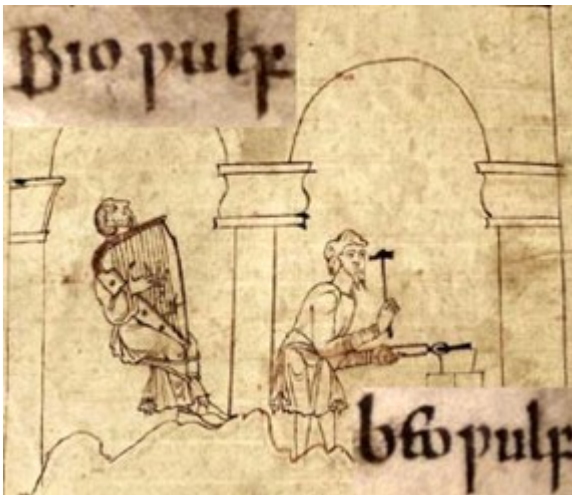 Bio ƿulf
beoƿulf